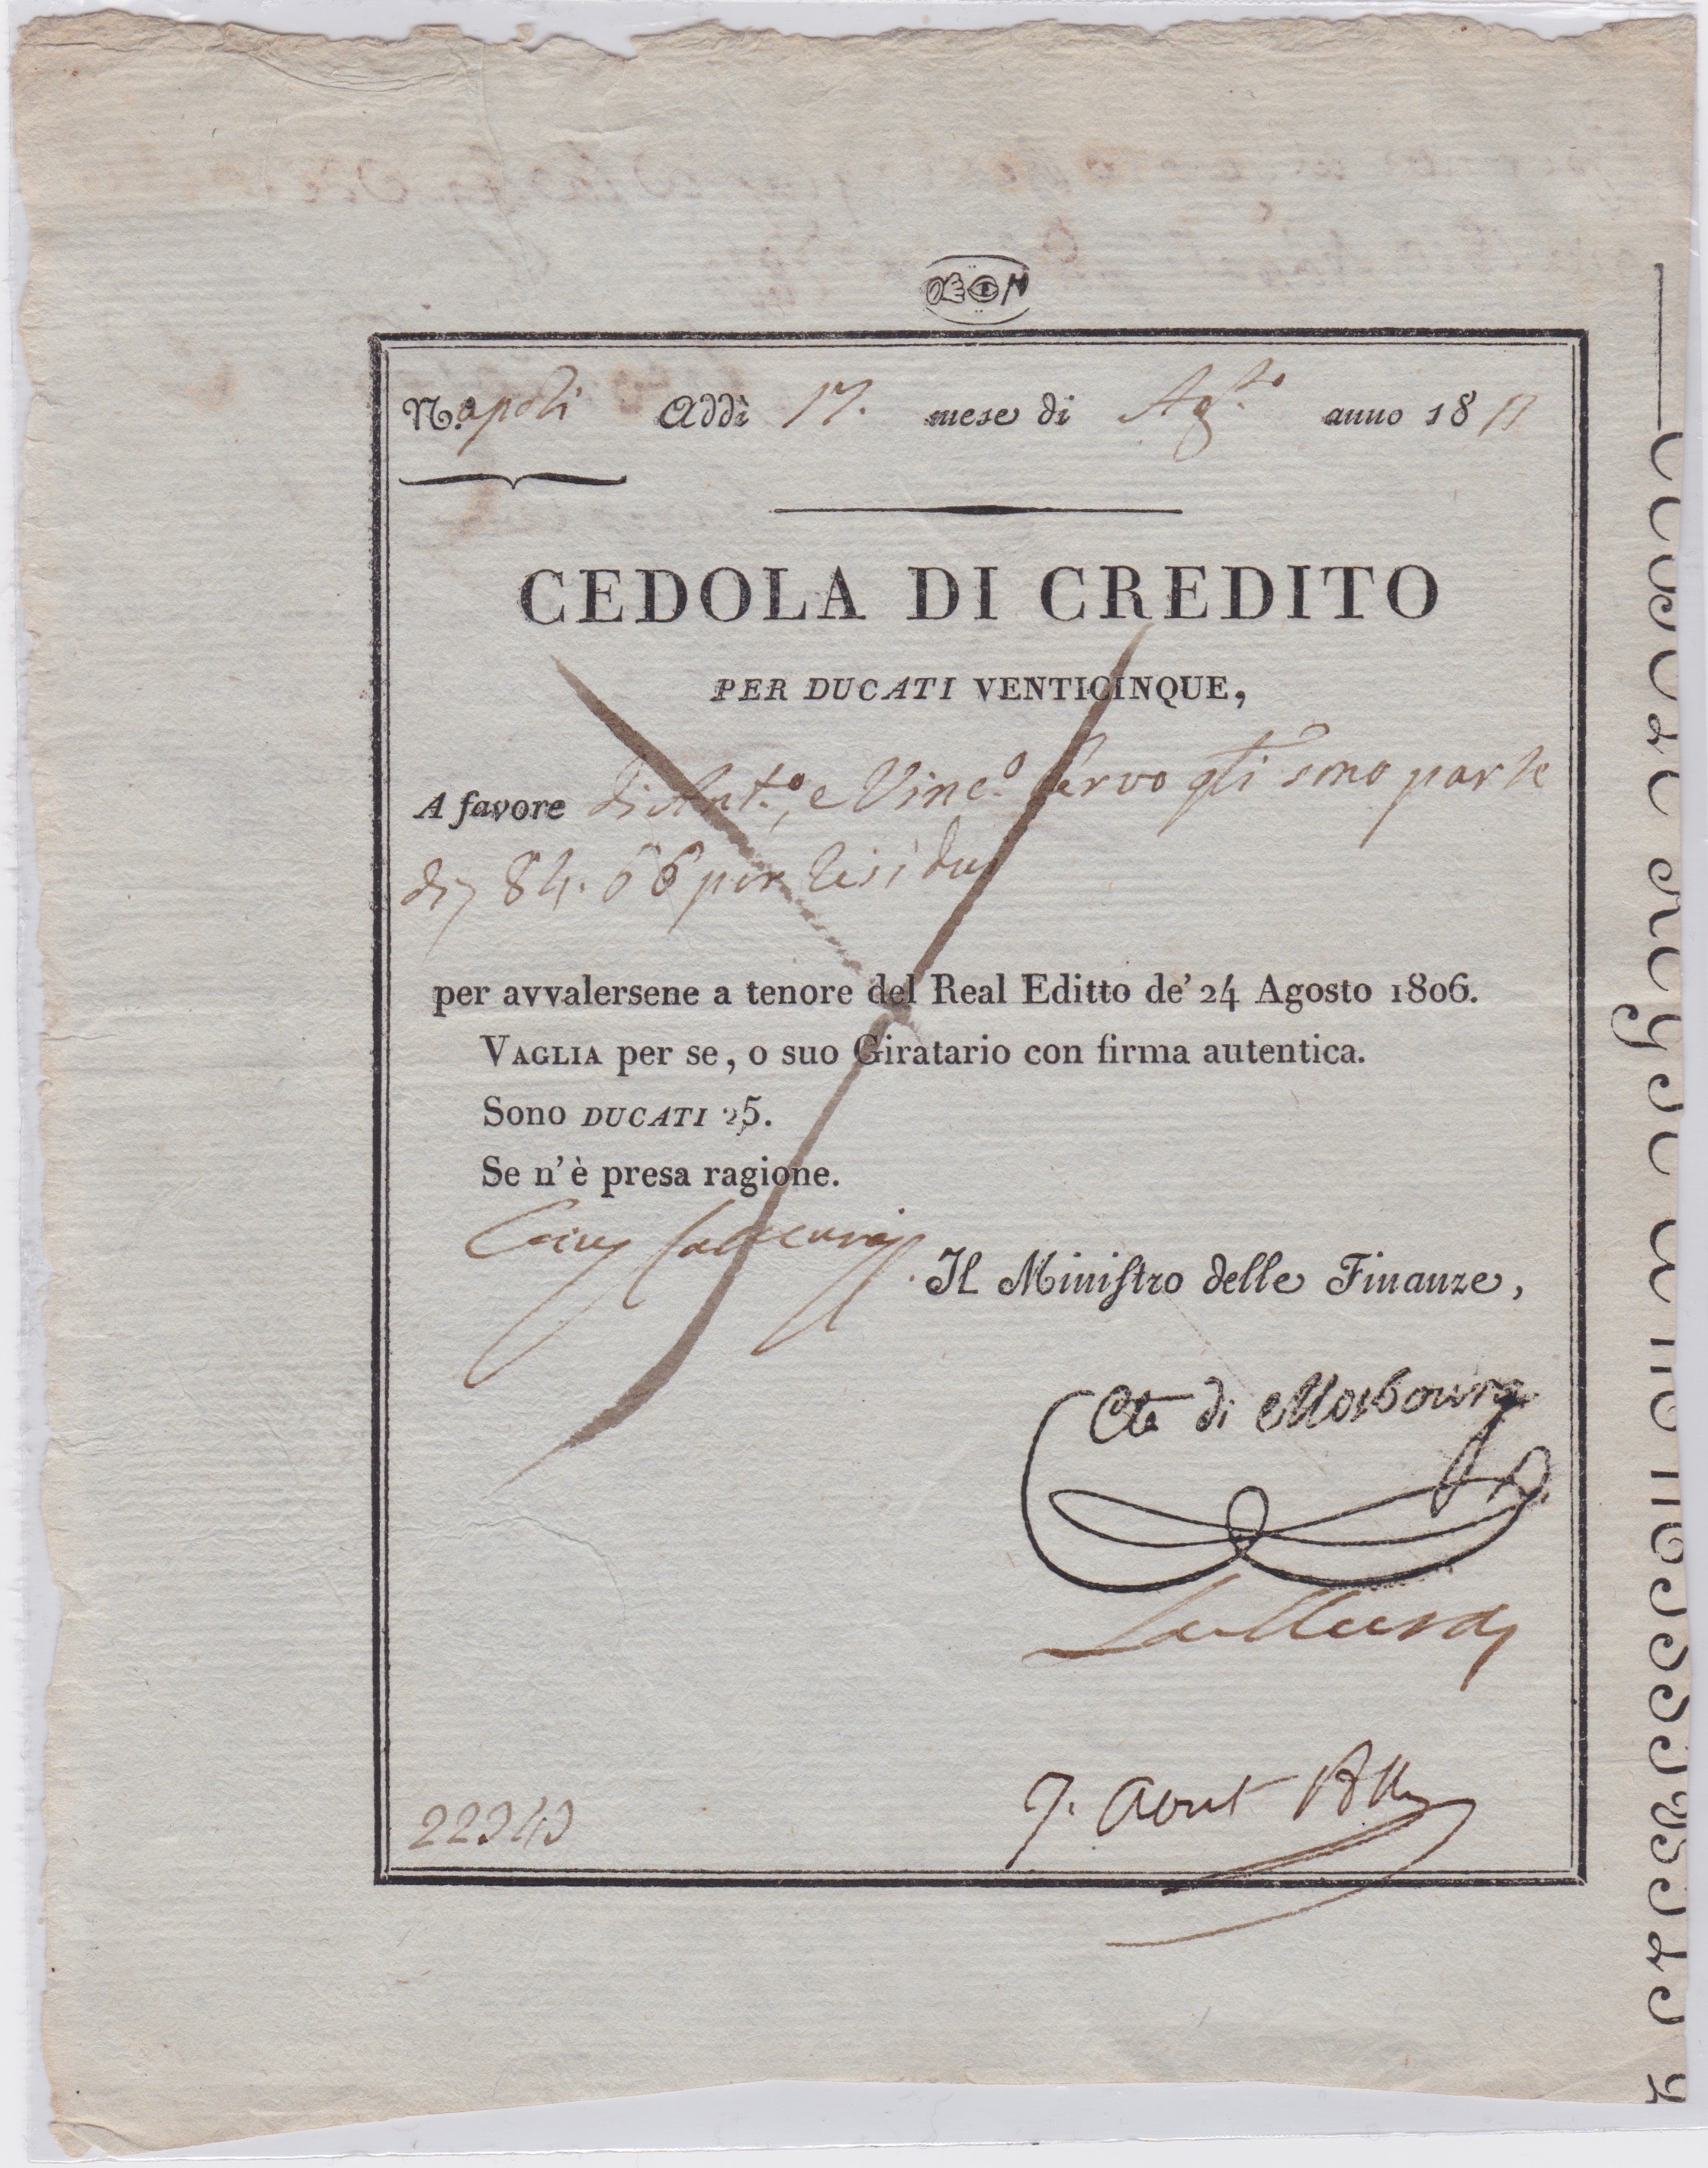 Napoli Addì 17. mese di Ag.to anno 1811
CEDOLA DI CREDITO
PER DUCATI VENTICINQUE,
A favore di Ant.o, e Vinc.o Servo gli sono parte
di 84. 66 per residuo
per avvalersene a tenore del Real Editto de' 24 Agosto 1806.
VAGLIA per se, o suo Giratario con firma autentica.
Sono DUCATI 25.
Se n'è presa ragione.
Il Ministro delle Finanze,
Cte di Mosbourg
7. Aout